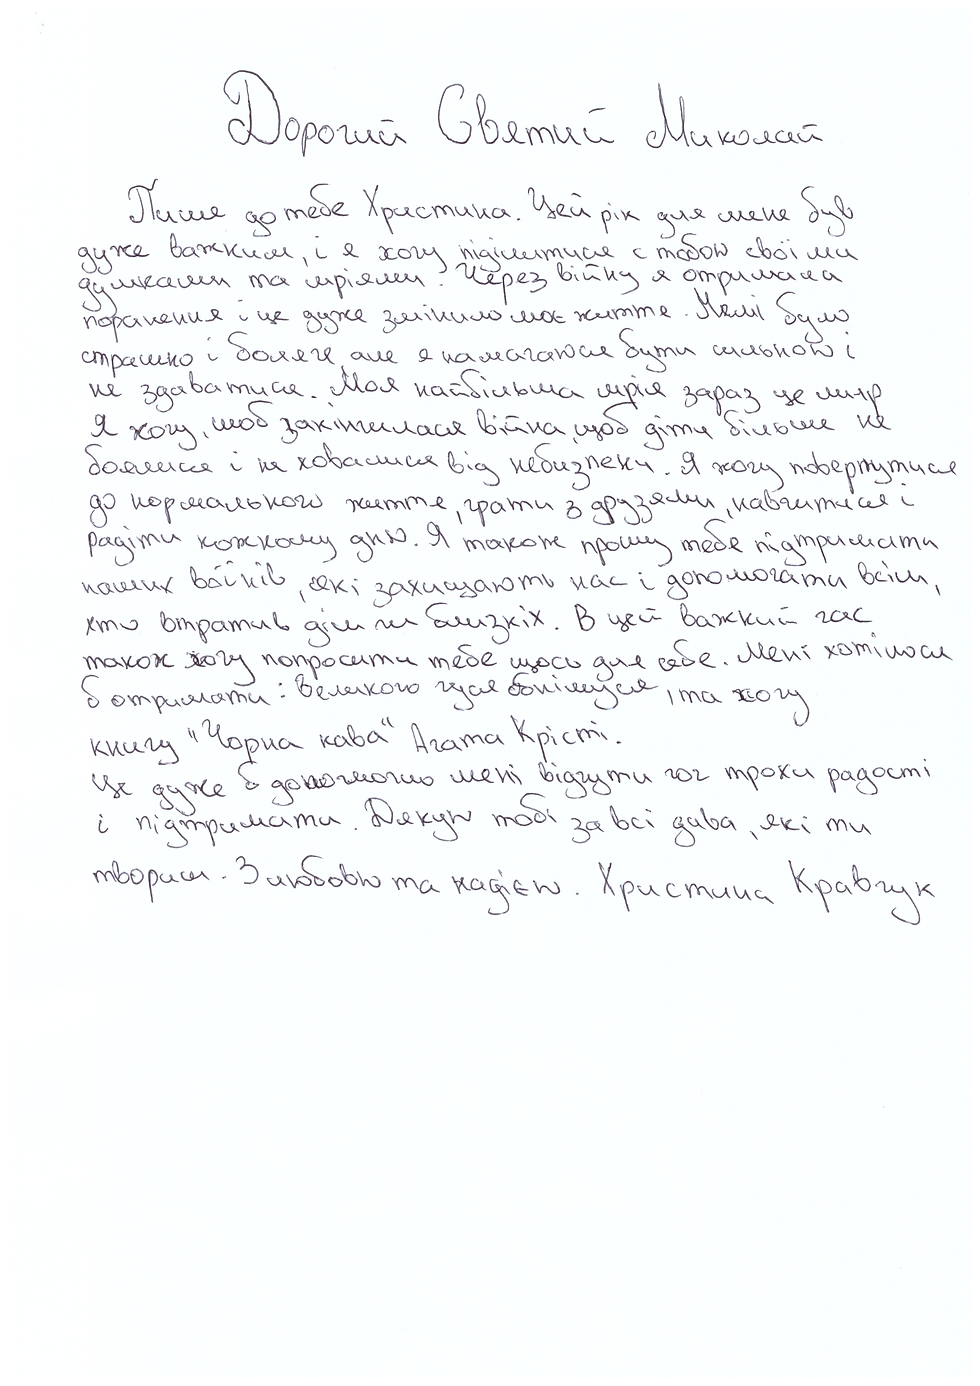 Дорогий Святий Миколай
Пише до тебе Христина. Цей рік для мене був
дуже важким, і я хочу піділитися с тобою своїми
думками та мріями. Через війну я отримала
поранення і це дуже змінило моє життє. Мені було
страшно і боляче, але я намагаюся бути сильною і
не здаватися. Моя найбільша мрія зараз це мир
Я хочу, щоб закінчилася війна, щоб діти більше не
боялися і не ховалися від небизпеки. Я хочу повернутися
до нормального життє, грати з друзями, навчитися і
радіти кожному дню. Я також прошу тебе підтримати
наших воїнів, які захищають нас і допомогати всім,
хто втратив дім чи близкіх. В цей важкий час
також хочу попросити тебе щось для себе. Мені хотілося
б отримати: Великого гуся обнімуся, та хочу
книгу "Чорна кава" Агата Крісті.
Це дуже б допомогло мені відчути хоч трохи радості
і підтримати. Дякую тобі за всі дива, які ти
твориш. З любовю та надією. Христина Кравчук